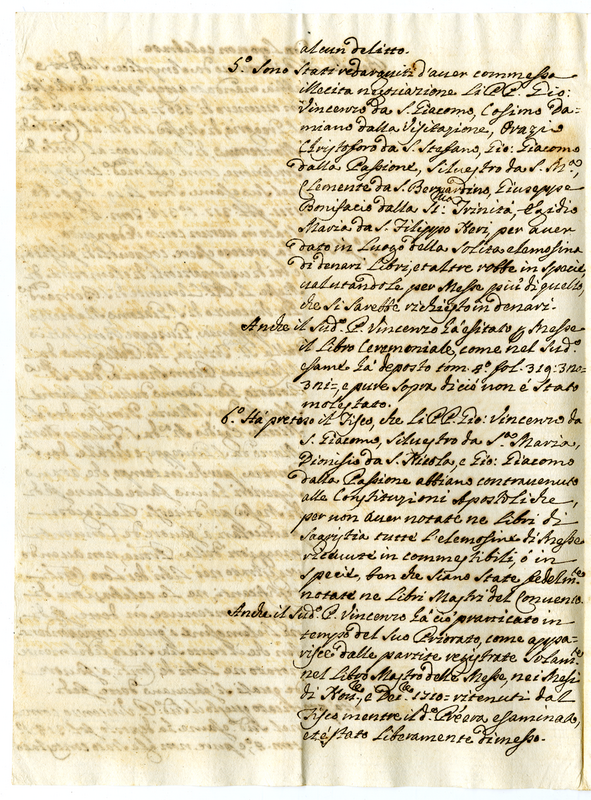 alcun delitto.
5.º Sono stati redarguiti d'aver commessa
illecita negoziazione Li PP. Gio:
Vincenzo da S. Giacomo, Cosimo Da=
miano dalla Visitazione, Orazio
Christoforo da S. Stefano, Gio: Giacomo
dalla Passione, Silvestro da S. M.ª,
Clemente da S. Bernardino, Giuseppe
Bonifacio dalla SS.ma Trinità, Egidio
Maria da S. Filippo Neri, per aver
dato in Luogo della solita elemosina
di denari Libri, et altre robbe in specie,
valutandole per Messe più di quello,
che si sarebbe richiesto in denari.
Anche il Sud.º P. Vincenzo hà esitato p Messe
il Libro Ceremoniale, come nel Sud.º
esame hà deposto tom. 4.º fol. 319: 3no=
3ni=, e pure sopra di ciò non è stato
molestato.
6.º Hà preteso il Fisco, che Li PP. Gio: Vincenzo da
S. Giacomo, Silvestro da S.ª Maria,
Dionisio da S. Nicola, e Gio: Giacomo
dalla Passione abbiano contravenuto
alle Constituzioni Apostoliche,
per non aver notate ne Libri di
Sagristia tutte l'elemosine di Messe
ricevute in commestibili, ò in
specie, ben che siano state fedelm.te
notate ne Libri Mastri del Convento.
Anche il Sud.º P. Vincenzo hà ciò pratticato in
tempo del suo Priorato, come appa=
risce dalle partite registrate solam.te
nel Libro Mastro delle Messe, nei Mesi
di Nov.bre, e Dec.bre 1710: ritenuti dal
Fisco mentre il d.º P. era esaminato,
et è stato liberamente dimesso.